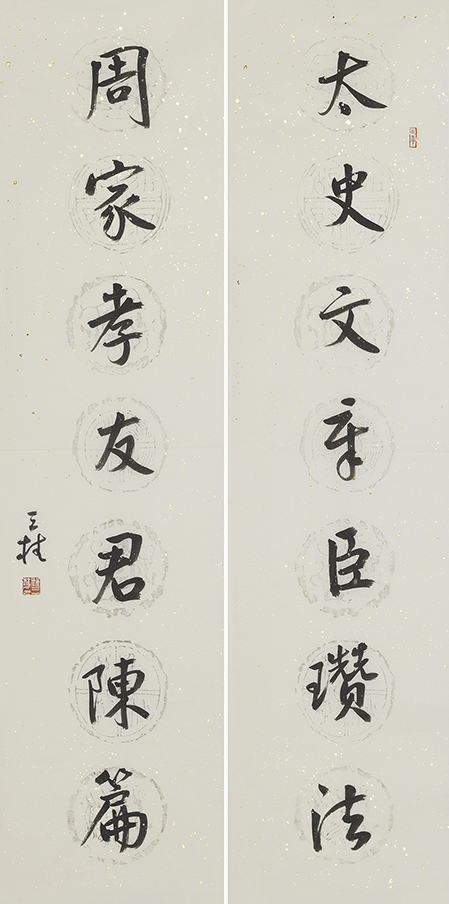 太史文章臣瓚法
周家孝友君陳篇